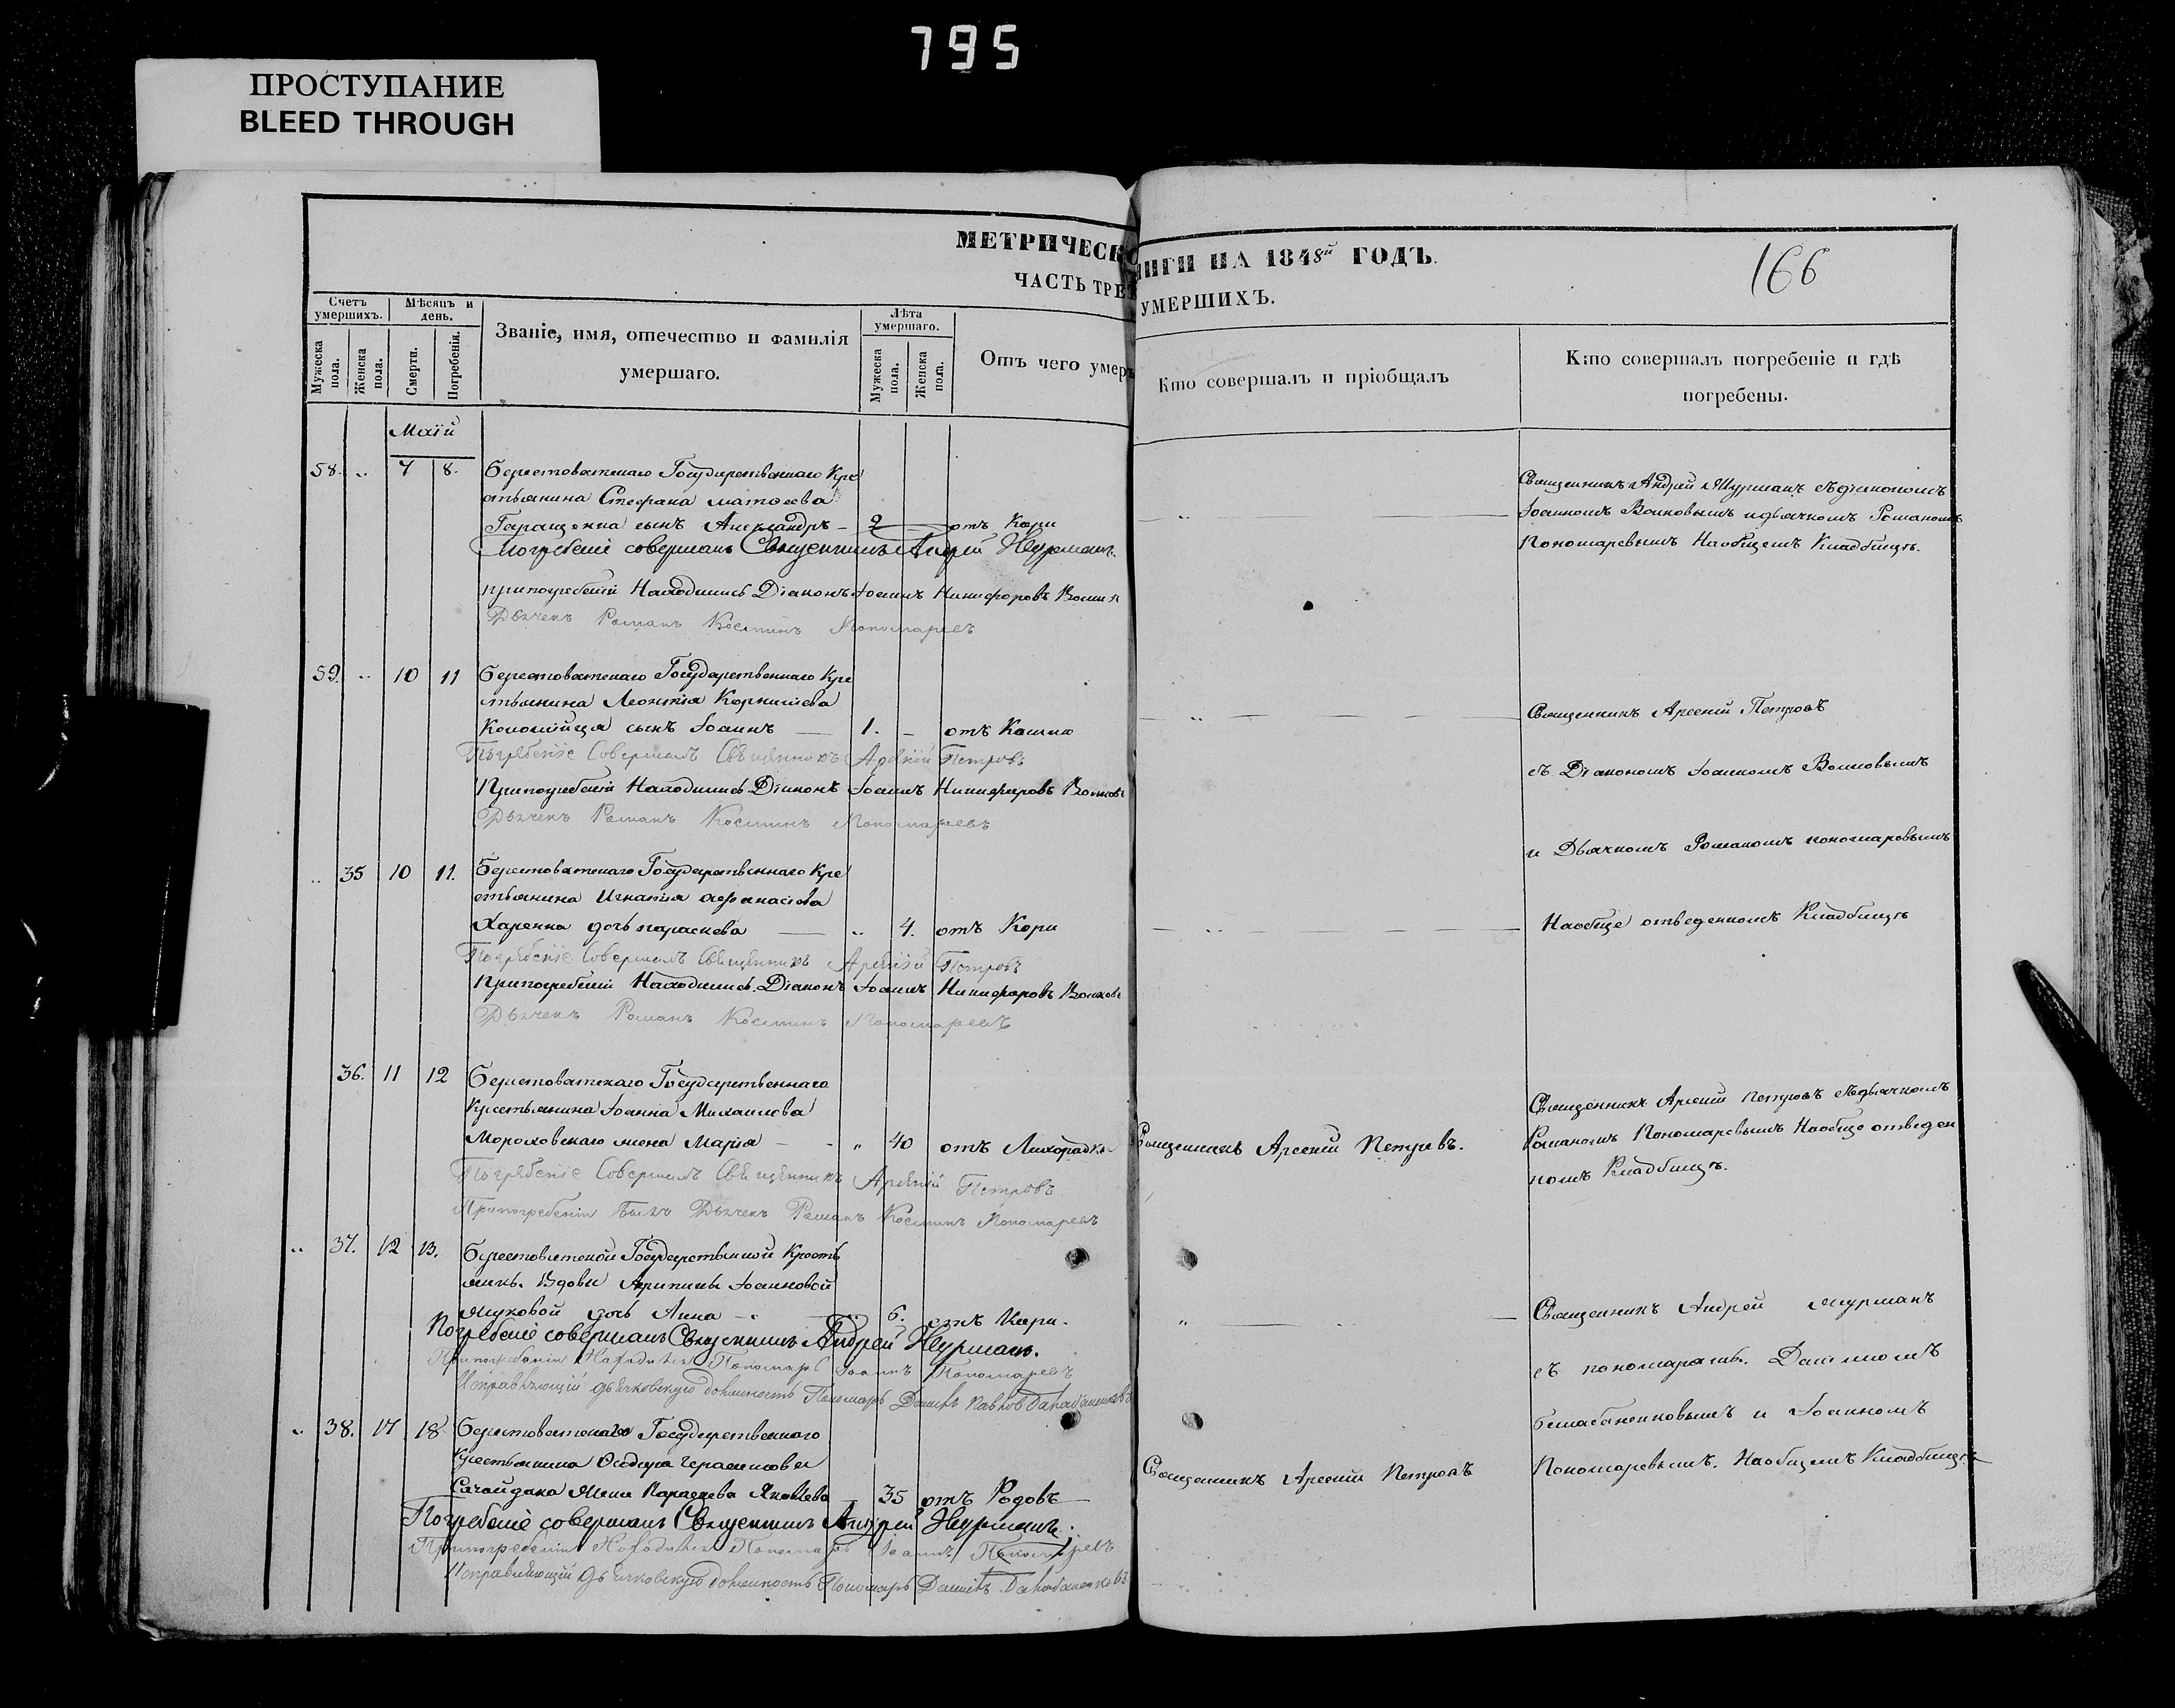 795
ПРОСТУПАНИЕ
BLEED THROUGH
МЕТРИЧЕСКО
ЧАСТЬ ТРЕТ
Счетъ умершихъ.
Мѣсяцъ и день.
Званіе, имя, отечество и фамилія умершаго.
Лѣта умершаго.
Отъ чего умеръ
Мужеска пола.
Женска пола.
Смерти.
Погребенія.
Мужеска пола.
Женска пола.
Маій
58. „ 7 8. Берестоватскаго Государственнаго Кре
стьянина Стефана Матѳеева
Геращенка сынъ Александръ - 2 — отъ Кори
Погребеніе совершалъ Священникъ Андрей Шурманъ.
При погребеніи Находились Діаконъ Іоаннъ Никифоровъ Волк
Дьячекъ Романъ Костинъ Пономаревъ
59. „ 10 11 Берестоватскаго Государственнаго Кре
стьянина Леонтія Корнилієва
Коломійца сынъ Іоаннъ — 1. - отъ Кашлю
Погребеніе Совершалъ Священникъ Арсеній Петровъ
При погребеніи Находились Діаконъ Іоаннъ Никифоровъ Волковъ
Дьячекъ Романъ Костинъ Пономаревъ
„ 35 10 11. Берестоватскаго Государственнаго Кре
стьянина Игнатія Афанасіева
Харенка дочь Параскева — „ 4. отъ Кори
Погребеніе Совершалъ Священникъ Арсеній Петровъ
При погребеніи Находились Діаконъ Іоаннъ Никифоровъ Волковъ
Дьячекъ Романъ Костинъ Пономаревъ
36. 11 12 Берестоватскаго Государственнаго
Крестьянина Іоанна Михаилова
Мороховскаго жена Марія - - „ 40 отъ Лихорадки
Погребеніе Совершалъ Священникъ Арсеній Петровъ
При погребеніи Былъ Дьячекъ Романъ Костинъ Пономаревъ
„ 37. 12 13. Берестоватской Государственной Кресть
янки. Вдовы Іоанновой
дочь Анна - „ 6. отъ Кори.
Погребеніе совершалъ Священникъ Андрей Шурманъ.
При погребеніи Находились Пономарь Іоаннъ Пономаревъ
Исправляющій дьячковскую должность Пономарь Даніилъ Павловъ
„ 38. 17 18 Берестоватскаго Государственнаго
Крестьянина Герасимова
Сагайдака жена Параскева Яковлева — 35 отъ Родовъ
Погребеніе совершалъ Священникъ Андрей Шурманъ.
При погребеніи Находились Пономарь Іоаннъ Пономаревъ
Исправляющій дьячковскую должность Пономарь Даніилъ
НИГИ НА 1848й ГОДЪ.
166
УМЕРШИХЪ.
Кто совершалъ и пріобщалъ
Кто совершалъ погребеніе и гдѣ погребены.
Священникъ Андрей Шурманъ съ діакономъ
Іоанномъ Волковымъ и дьячкомъ Романомъ
Пономаревымъ На общемъ Кладбищѣ.
Священникъ Арсеній Петровъ
съ Діакономъ Іоанномъ Волковымъ
и Дьячкомъ Романомъ Пономаревымъ
На обще отведенномъ Кладбищѣ
Священникъ Арсеній Петровъ.
Священникъ Арсеній Петровъ съ дьячкомъ
Романомъ Пономаревымъ На обще отведен
номъ Кладбищѣ.
Священникъ Андрей Шурманъ
съ пономарями. Даніиломъ
и Іоанномъ
Священникъ Арсеній Петровъ
Пономаревымъ. На общемъ Кладбищѣ